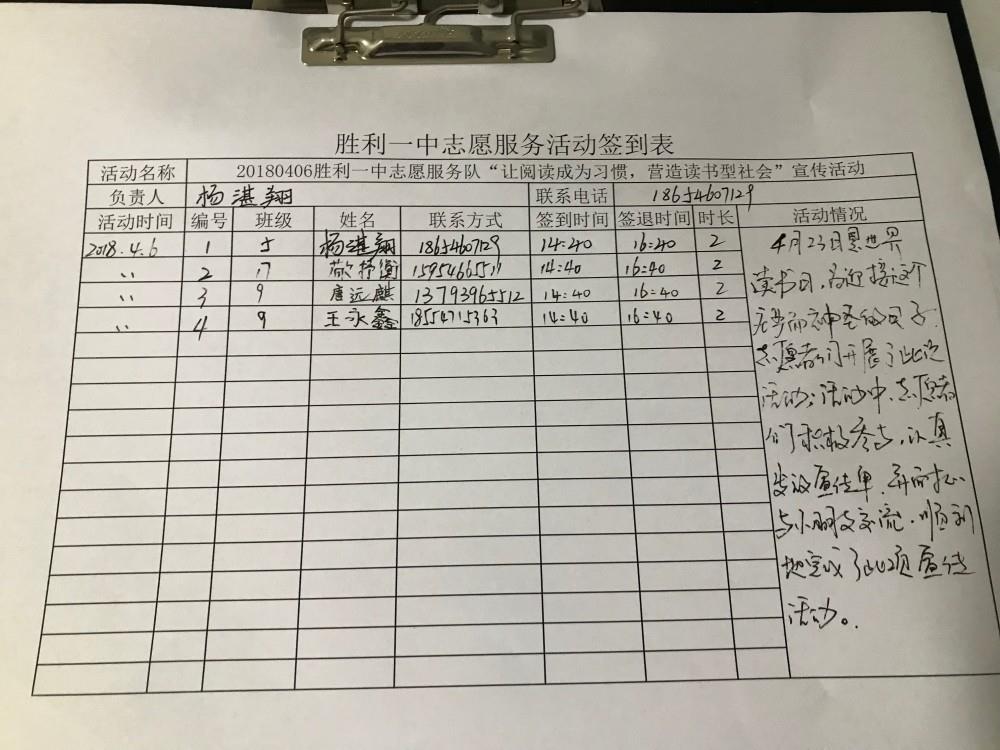 胜利一中志愿服务活动签到表
活动名称 20180406胜利一中志愿服务队“让阅读成为习惯，营造读书型社会”宣传活动
负责人 杨湛翔 联系电话 18654607129
活动时间 编号 班级 姓名 联系方式 签到时间 签退时间 时长 活动情况
2018.4.6 1 5 杨湛翔 18654607129 14:40 16:40 2
〃 2 17 14:40 16:40 2
〃 3 9 唐远麒 13793965512 14:40 16:40 2
〃 4 9 王永鑫 18554715363 14:40 16:40 2
4月23日是世界
读书日，为迎接这个
而神圣的日子，
志愿者们开展了此次
活动；活动中，志愿者
们积极参与，认真
发放宣传单，并耐心
与小朋友交流，顺利
地完成了此项宣传
活动。